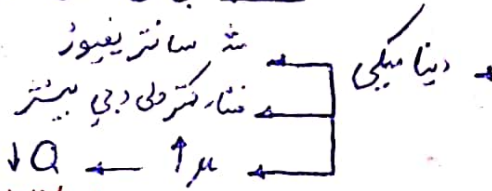 دینامیکی
سانتریفیوژ
فشار کمتر ولی دبی بیشتر
μ↑ ← Q↓